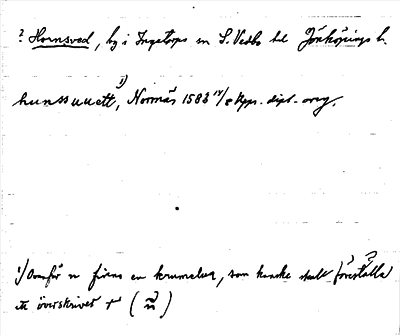 ? Hornsved, by i Ingatorps sn S. Vedbo hd Jönköpings l.
hunssuuett, 1) Normäs 1583 14/8 Kyr. dipl. orig.
1) Ovanför n finns en krumelur, som kanske skall föreställa ?
ett överskrivet r